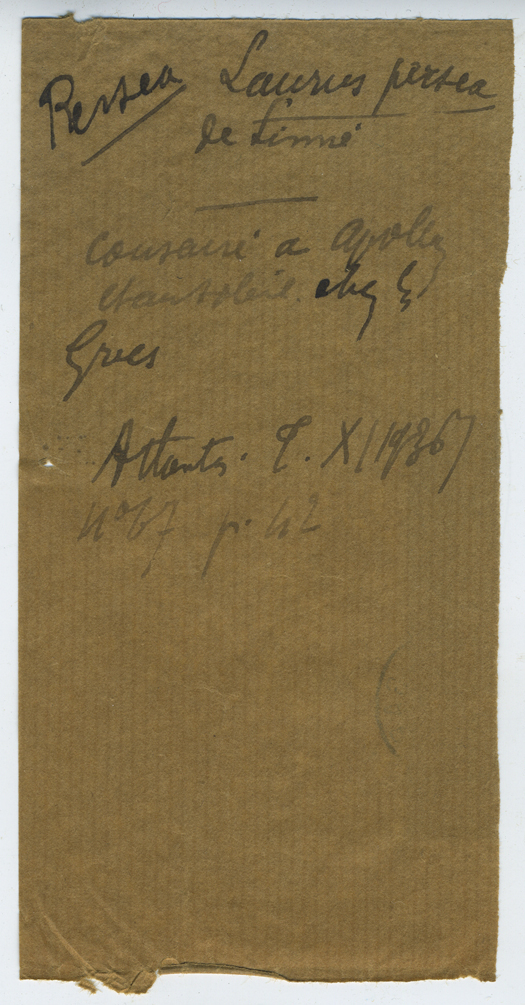 Persea Laurus persea
de Linné
consacré a Apollon
et au soleil chez les
Grecs
Atlantis. T. XI (1936)
nº 67 p. 42